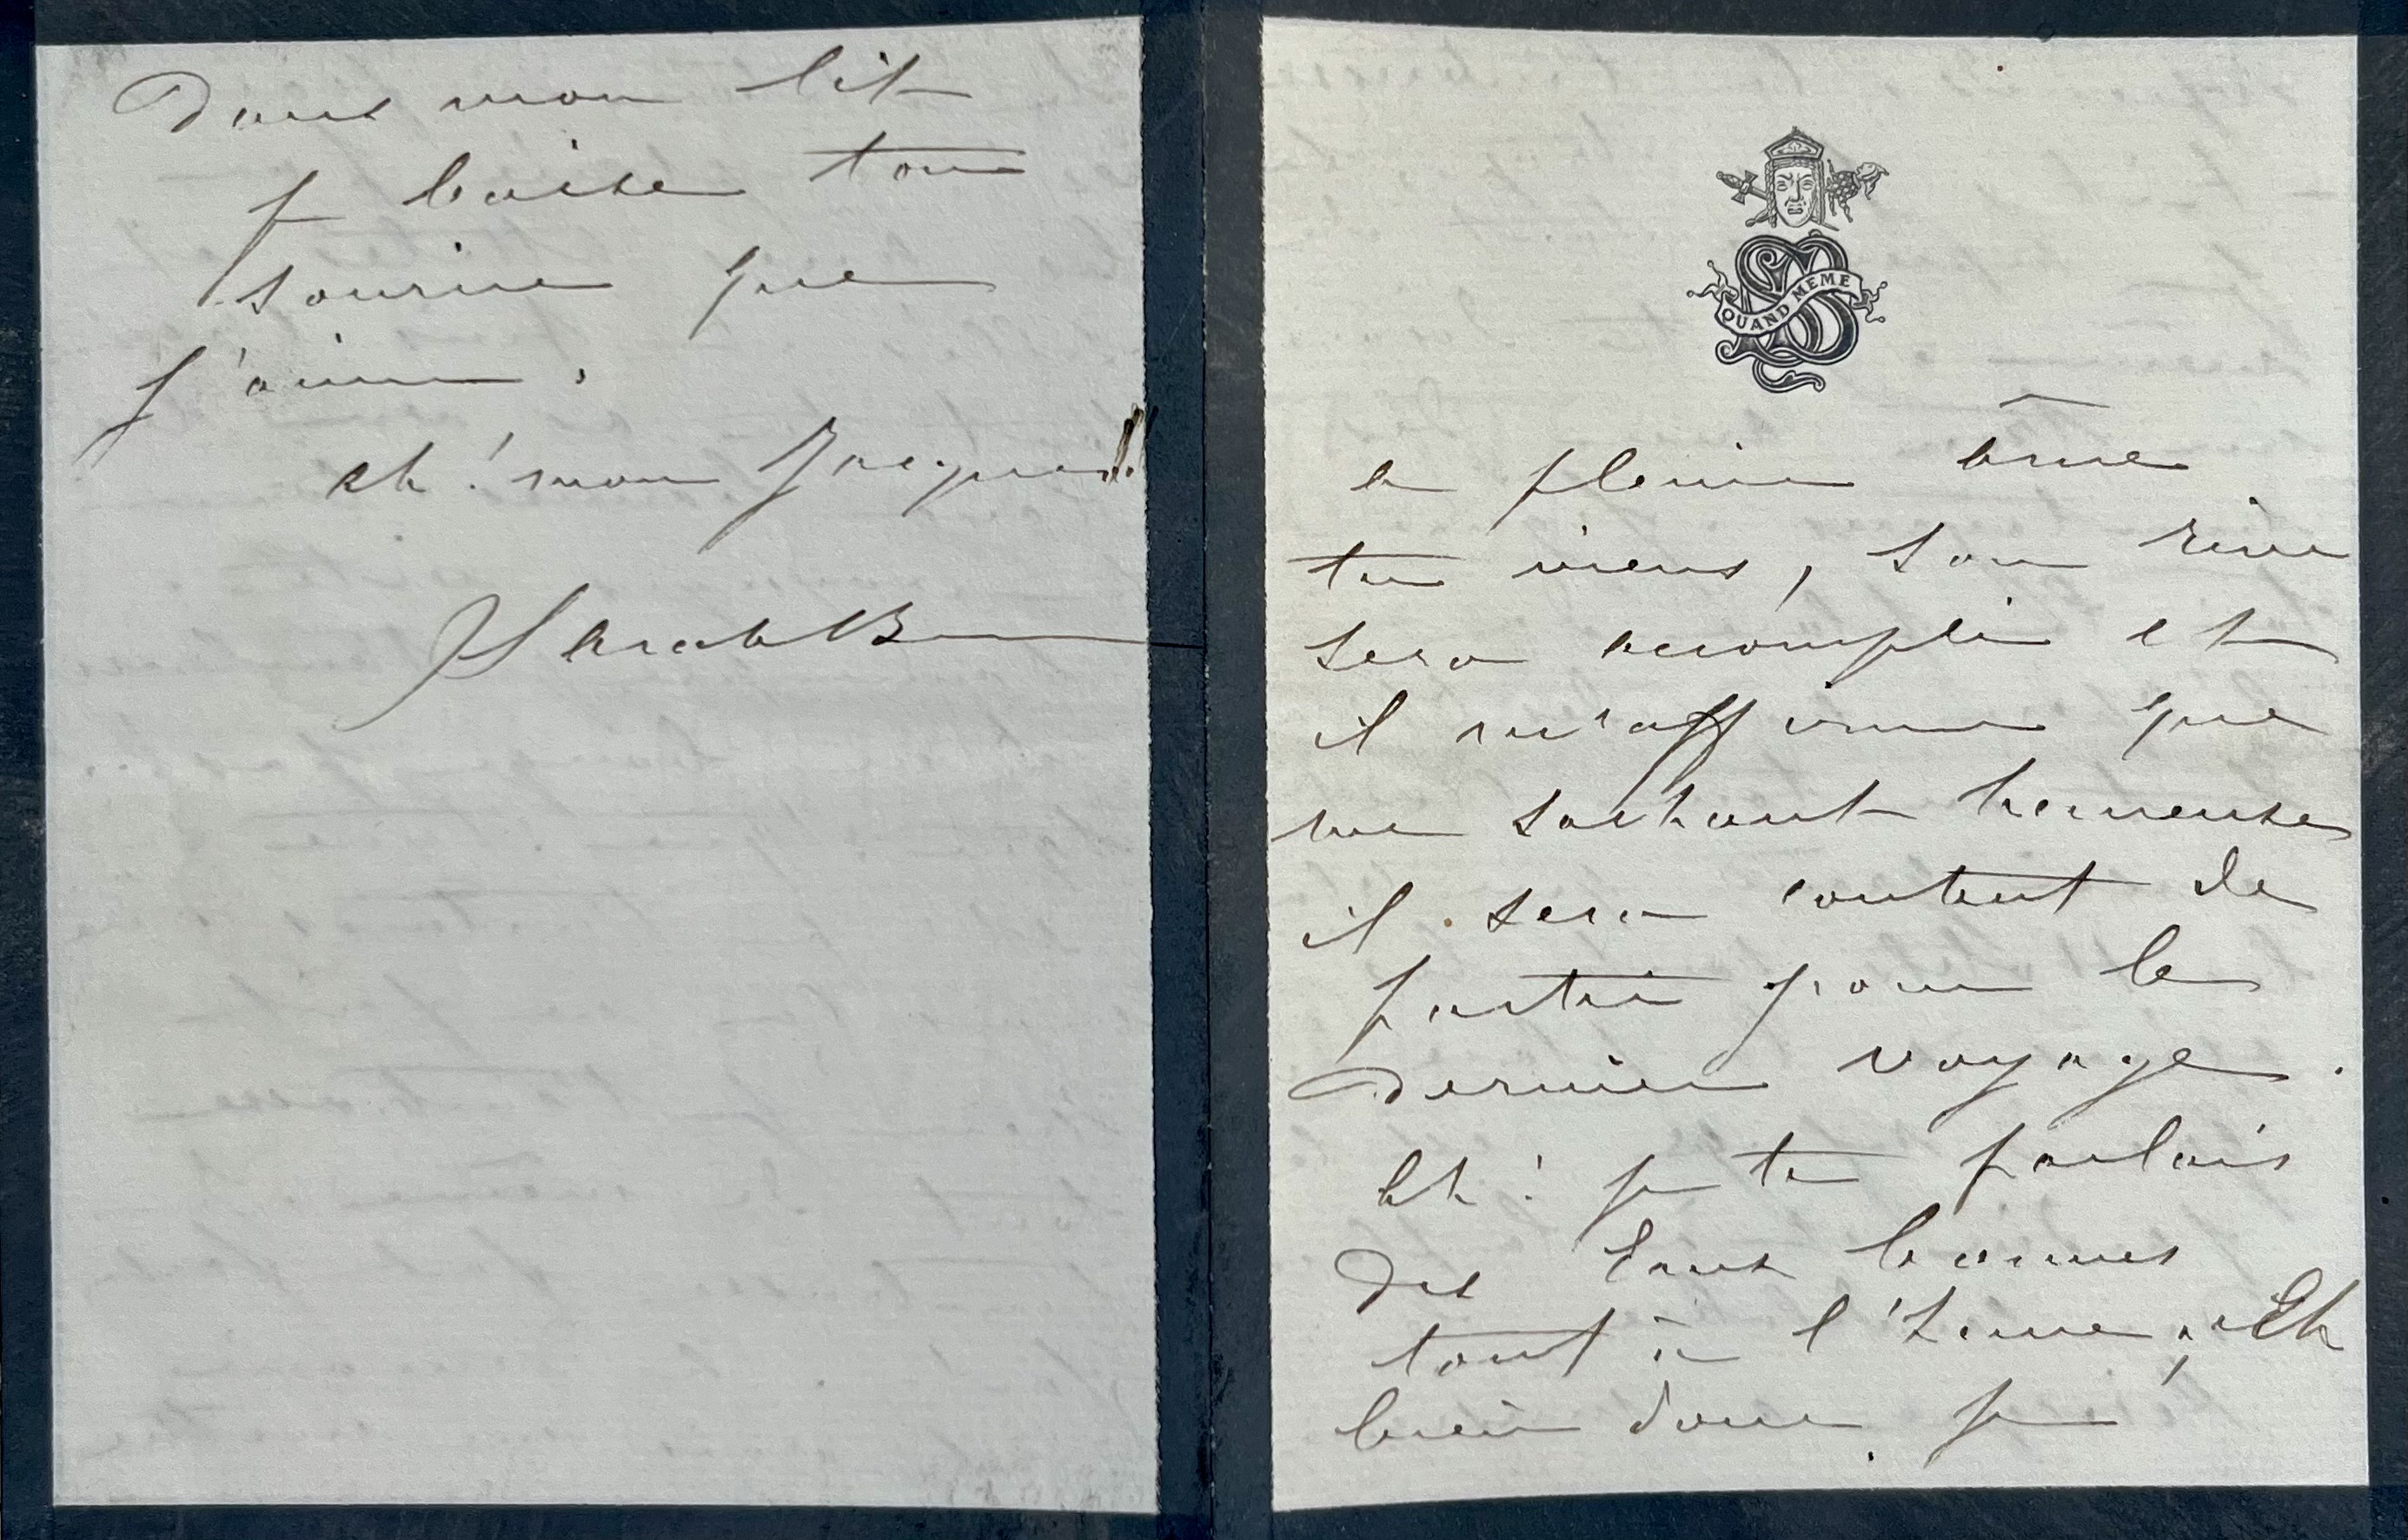 Dans mon lit
je baise ton
sourire que
j'aime.
ah! mon Jacques!!
Sarah B
SB
QUAND MEME
a pleine âme
tu viens, son rêve
sera accompli et
il m'affirme que
me sachant heureuse
il sera content de
partir pour le
dernier voyage.
Ah! je te parlais
des Eaux bonnes
tout à l'heure, Eh
bien donc je